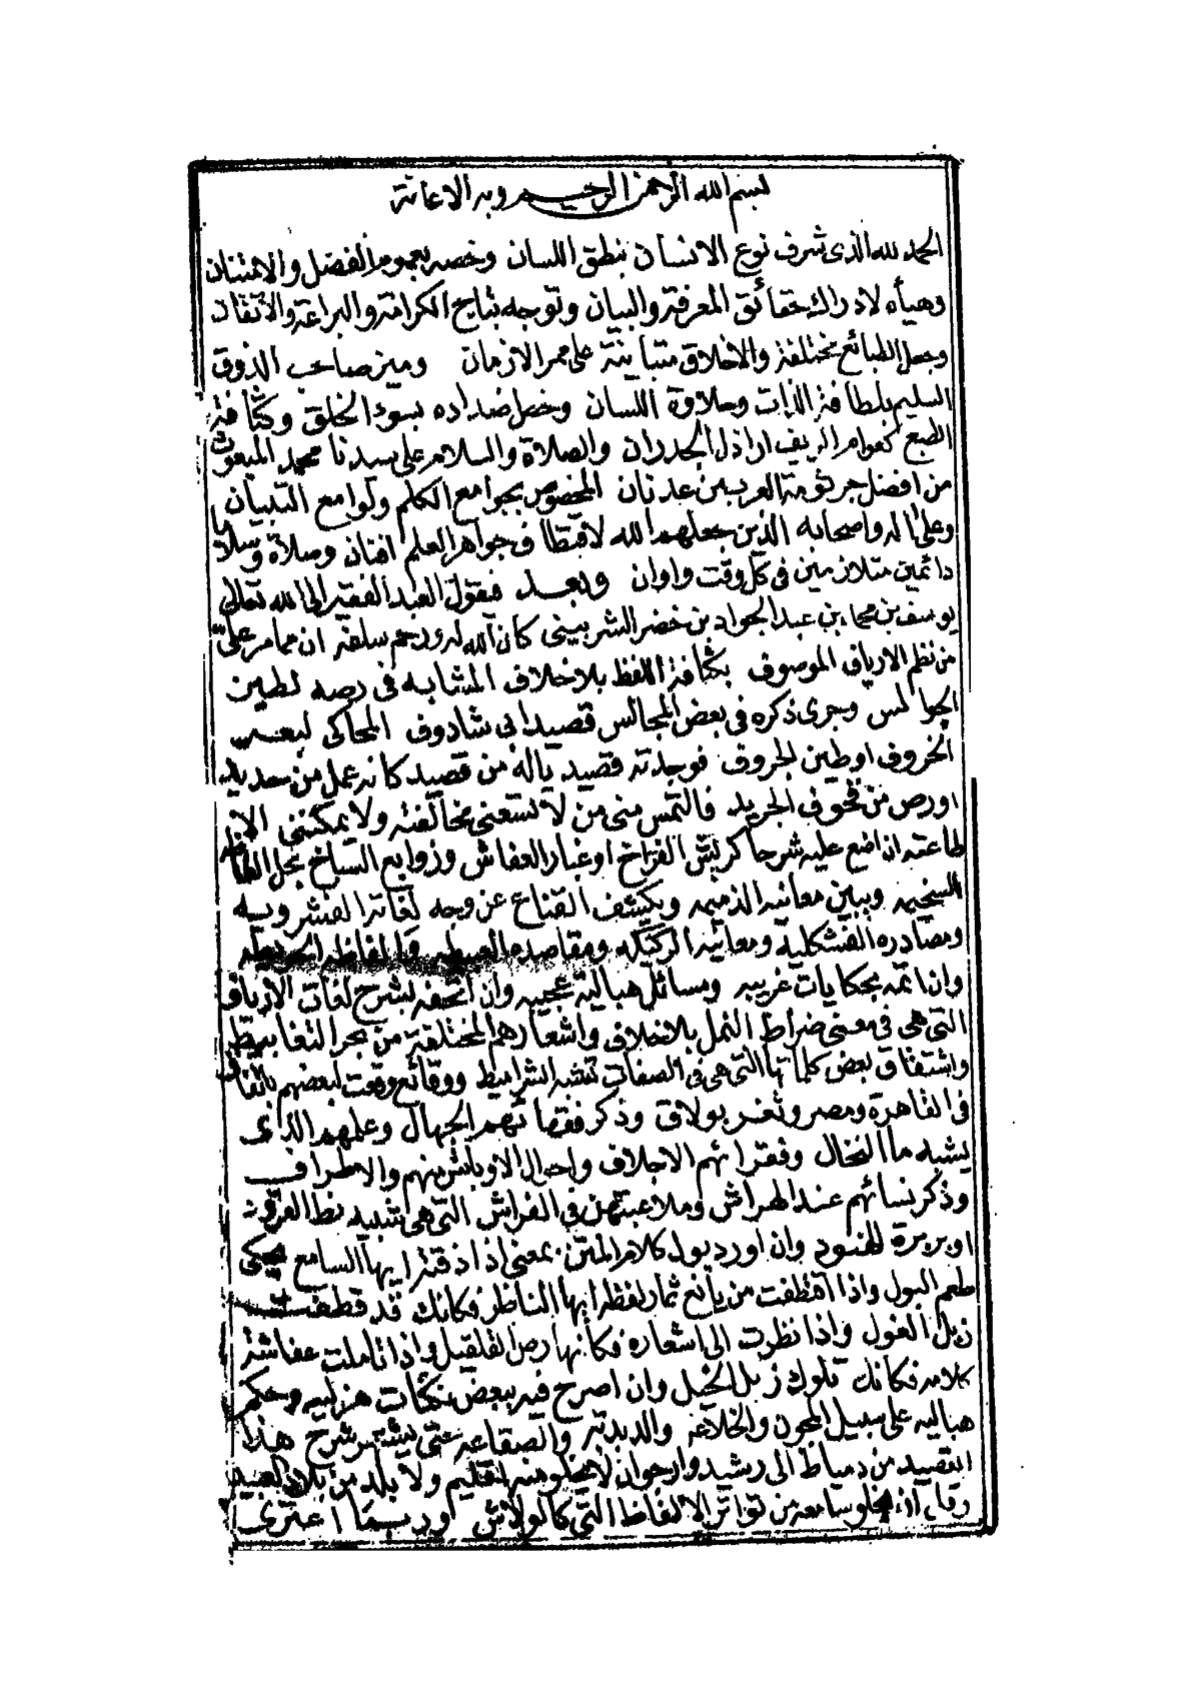 بسم الله الرحمن الرحيم وبه الاعانة
الحمد لله الذى شرف نوع الانسان بنطق اللسان وخصه بعموم الفضل والامتنان
وهيأه لادراك حقائق المعرفة والبيان وتوجه بتاج الكرامة والبراعة والاتقان
وجعل الطبائع مختلفة والاخلاق متباينة على ممر الازمان وميز صاحب الذوق
السليم بلطافة الذات وحلاوة اللسان وخص ضداده بسوء الخلق وكثافة
الطبع كعوام الريف اراذل الجدران والصلاة والسلام على سيدنا محمد المبعوث
من افضل جرثومة العرب من عدنان المخصوص بجوامع الكلم ولوامع التبيان
وعلى اله واصحابه الذين جعلهم الله لاقتطاف جواهر العلم افنان وصلاة وسلاما
دائمين متلازمين فى كل وقت واوان وبعد فيقول العبد الفقير الى الله تعالى
يوسف بن محمد بن عبد الجواد بن خضر الشربينى كان الله له ورحم سلفه ان مما مر على
من نظم الارياف الموصوف بكثافة اللفظ بلاخلاف المشابه فى رصه لطين
الجوالس وجرى ذكره فى بعض المجالس قصيد ابى شادوف المحاكى لبعر
الخروف او طين الجروف فوجدته قصيد ياله من قصيد كانه عمل من حديد
اورص من قحوف الجريد فالتمس منى من لا تسعنى مخالفته ولا يمكننى الا
طاعته ان اضع عليه شرحا كريش الفراخ او غبار العفاش وزوابع السباخ يحل الفاظه
السخيمه ويبين معانيه الذميمه ويكشف القناع عن وجه لغاته الفشرويه
ومصادره الفشكليه ومعانيه الركيكه ومقاصده العبيطه والفاظه
وان اتمه بحكايات غريبه ومسائل هباليه عجيبه وان اتحفه بشرح لغات الارياف
التى هى فى معنى ضراط النمل بلاخلاف واشعارهم المختلقة من بحر التخابيط
واشتقاق بعض كلماتها التى هى فى الصفات تشبه الشراميط ووقائع وقعت لبعضهم باتفاق
فى القاهرة ومصر وثغر بولاق وذكر فقهائهم الجهال وعلمهم الذى
يشبه ماء النخال وفقرائهم الاجلاف واحوال الاوباش منهم والاطراف
وذكر نسائهم عند الهراش وملاعبتهن فى الفراش التى هى شبيه نط القرود
او بربرة الهنود وان اورد بول كلامه المتين بمعنى اذا ذقته ايها السامع يحكى
طعم البول واذا اقتطفت من يانع ثمار لفظه ايها الناظر فكانك قد قطفت
زبل الغول واذا نظرت الى اشعاره فكأنها رص القلقيل واذا تاملت عفاشة
كلامه فكانك تلوك زبل الخيل وان اصرح فيه ببعض نكات هزليه وحكم
هباليه على سبيل المجون والخلاعه والدبدته والصقاعه حتى يشتهر شرح هذا
القصيد من دمياط الى رشيد وارجوان لا يخلو منه اقليم ولا بلد من بلاد العبيد
وقل اذ يخلو سامعه من تواتر الالفاظ التى كالولاش وربما اعترى